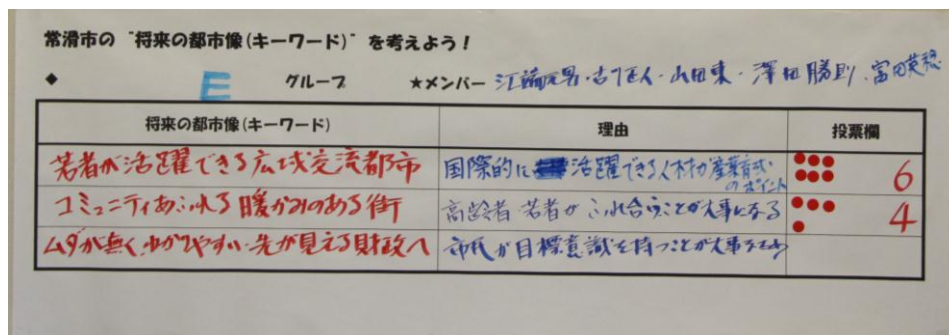 常滑市の“将来の都市像(キーワード)”を考えよう！
◆ E グループ ★メンバー 江端 ・山田東・澤田勝則・富田英
将来の都市像(キーワード) 理由 投票欄
若者が活躍できる広域交流都市 国際的に 活躍できる人材が産業育式 6
のポイント
コミュニティあふれる暖かみのある街 高齢者 若者がふれ合うことが大事になる 4
ムダが無く、わかりやすい先が見える財政へ 市民が目標意識を持つことが大事